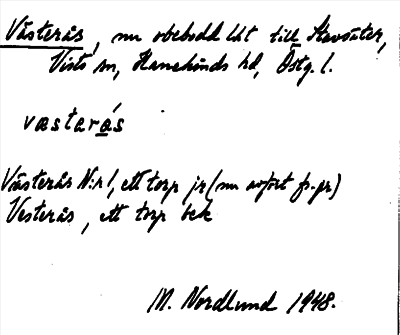 Västerås, nu obebodd lht till Stavsäter,
Vists sn, Hanekinds hd, Östg. l.
vastarás
Västerås N:r 1, ett torp jr (nu avfört fr. jr)
Vesterås, ett torp bek
M. Nordlund 1948.